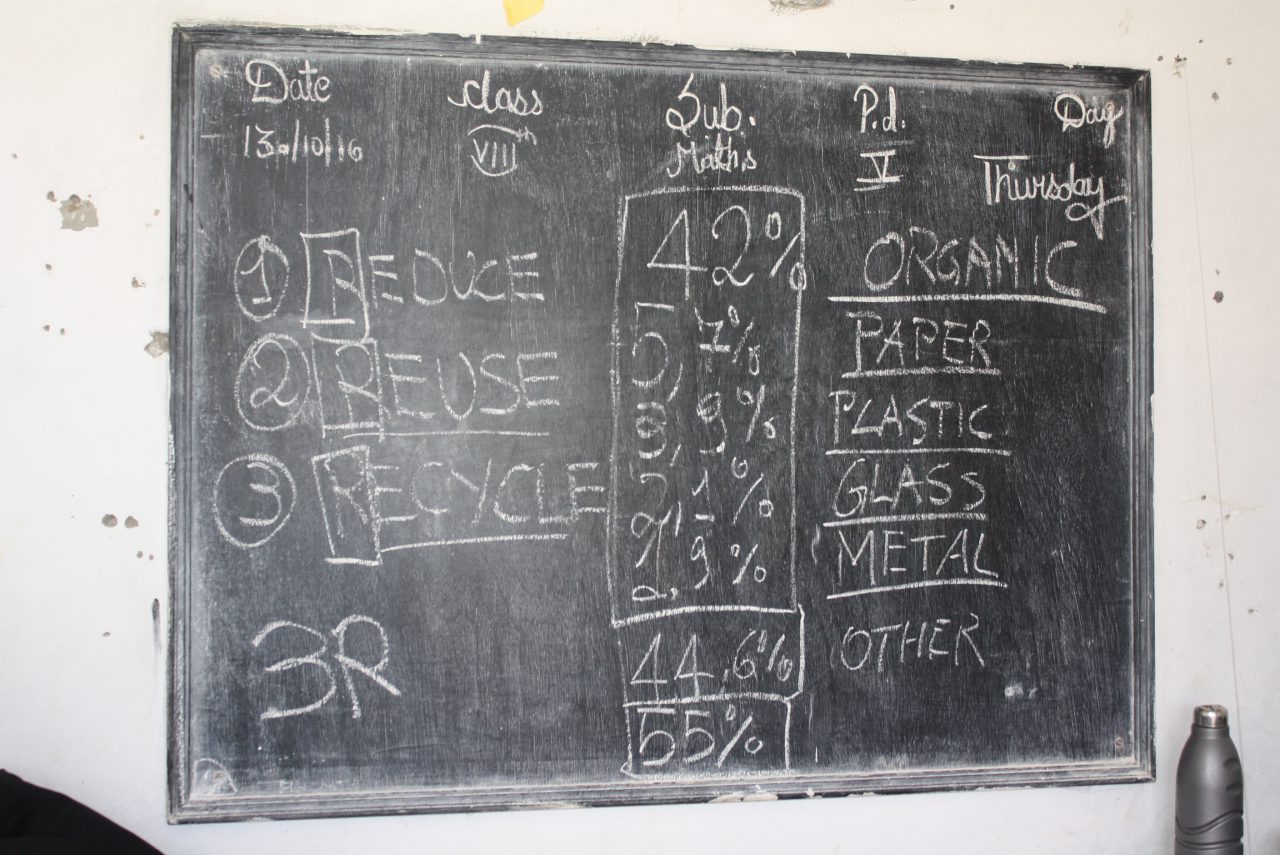 Date class Sub. P.d. Day
13./10/16 VIIIth Maths V Thursday
① REDUCE 42% ORGANIC
5,7% PAPER
② REUSE 8,9% PLASTIC
③ RECYCLE 2,1% GLASS
2,9% METAL
3R 44,6% OTHER
55%